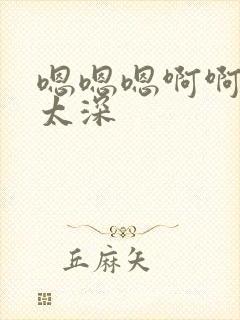 嗯嗯嗯啊啊
太深
丘麻矢